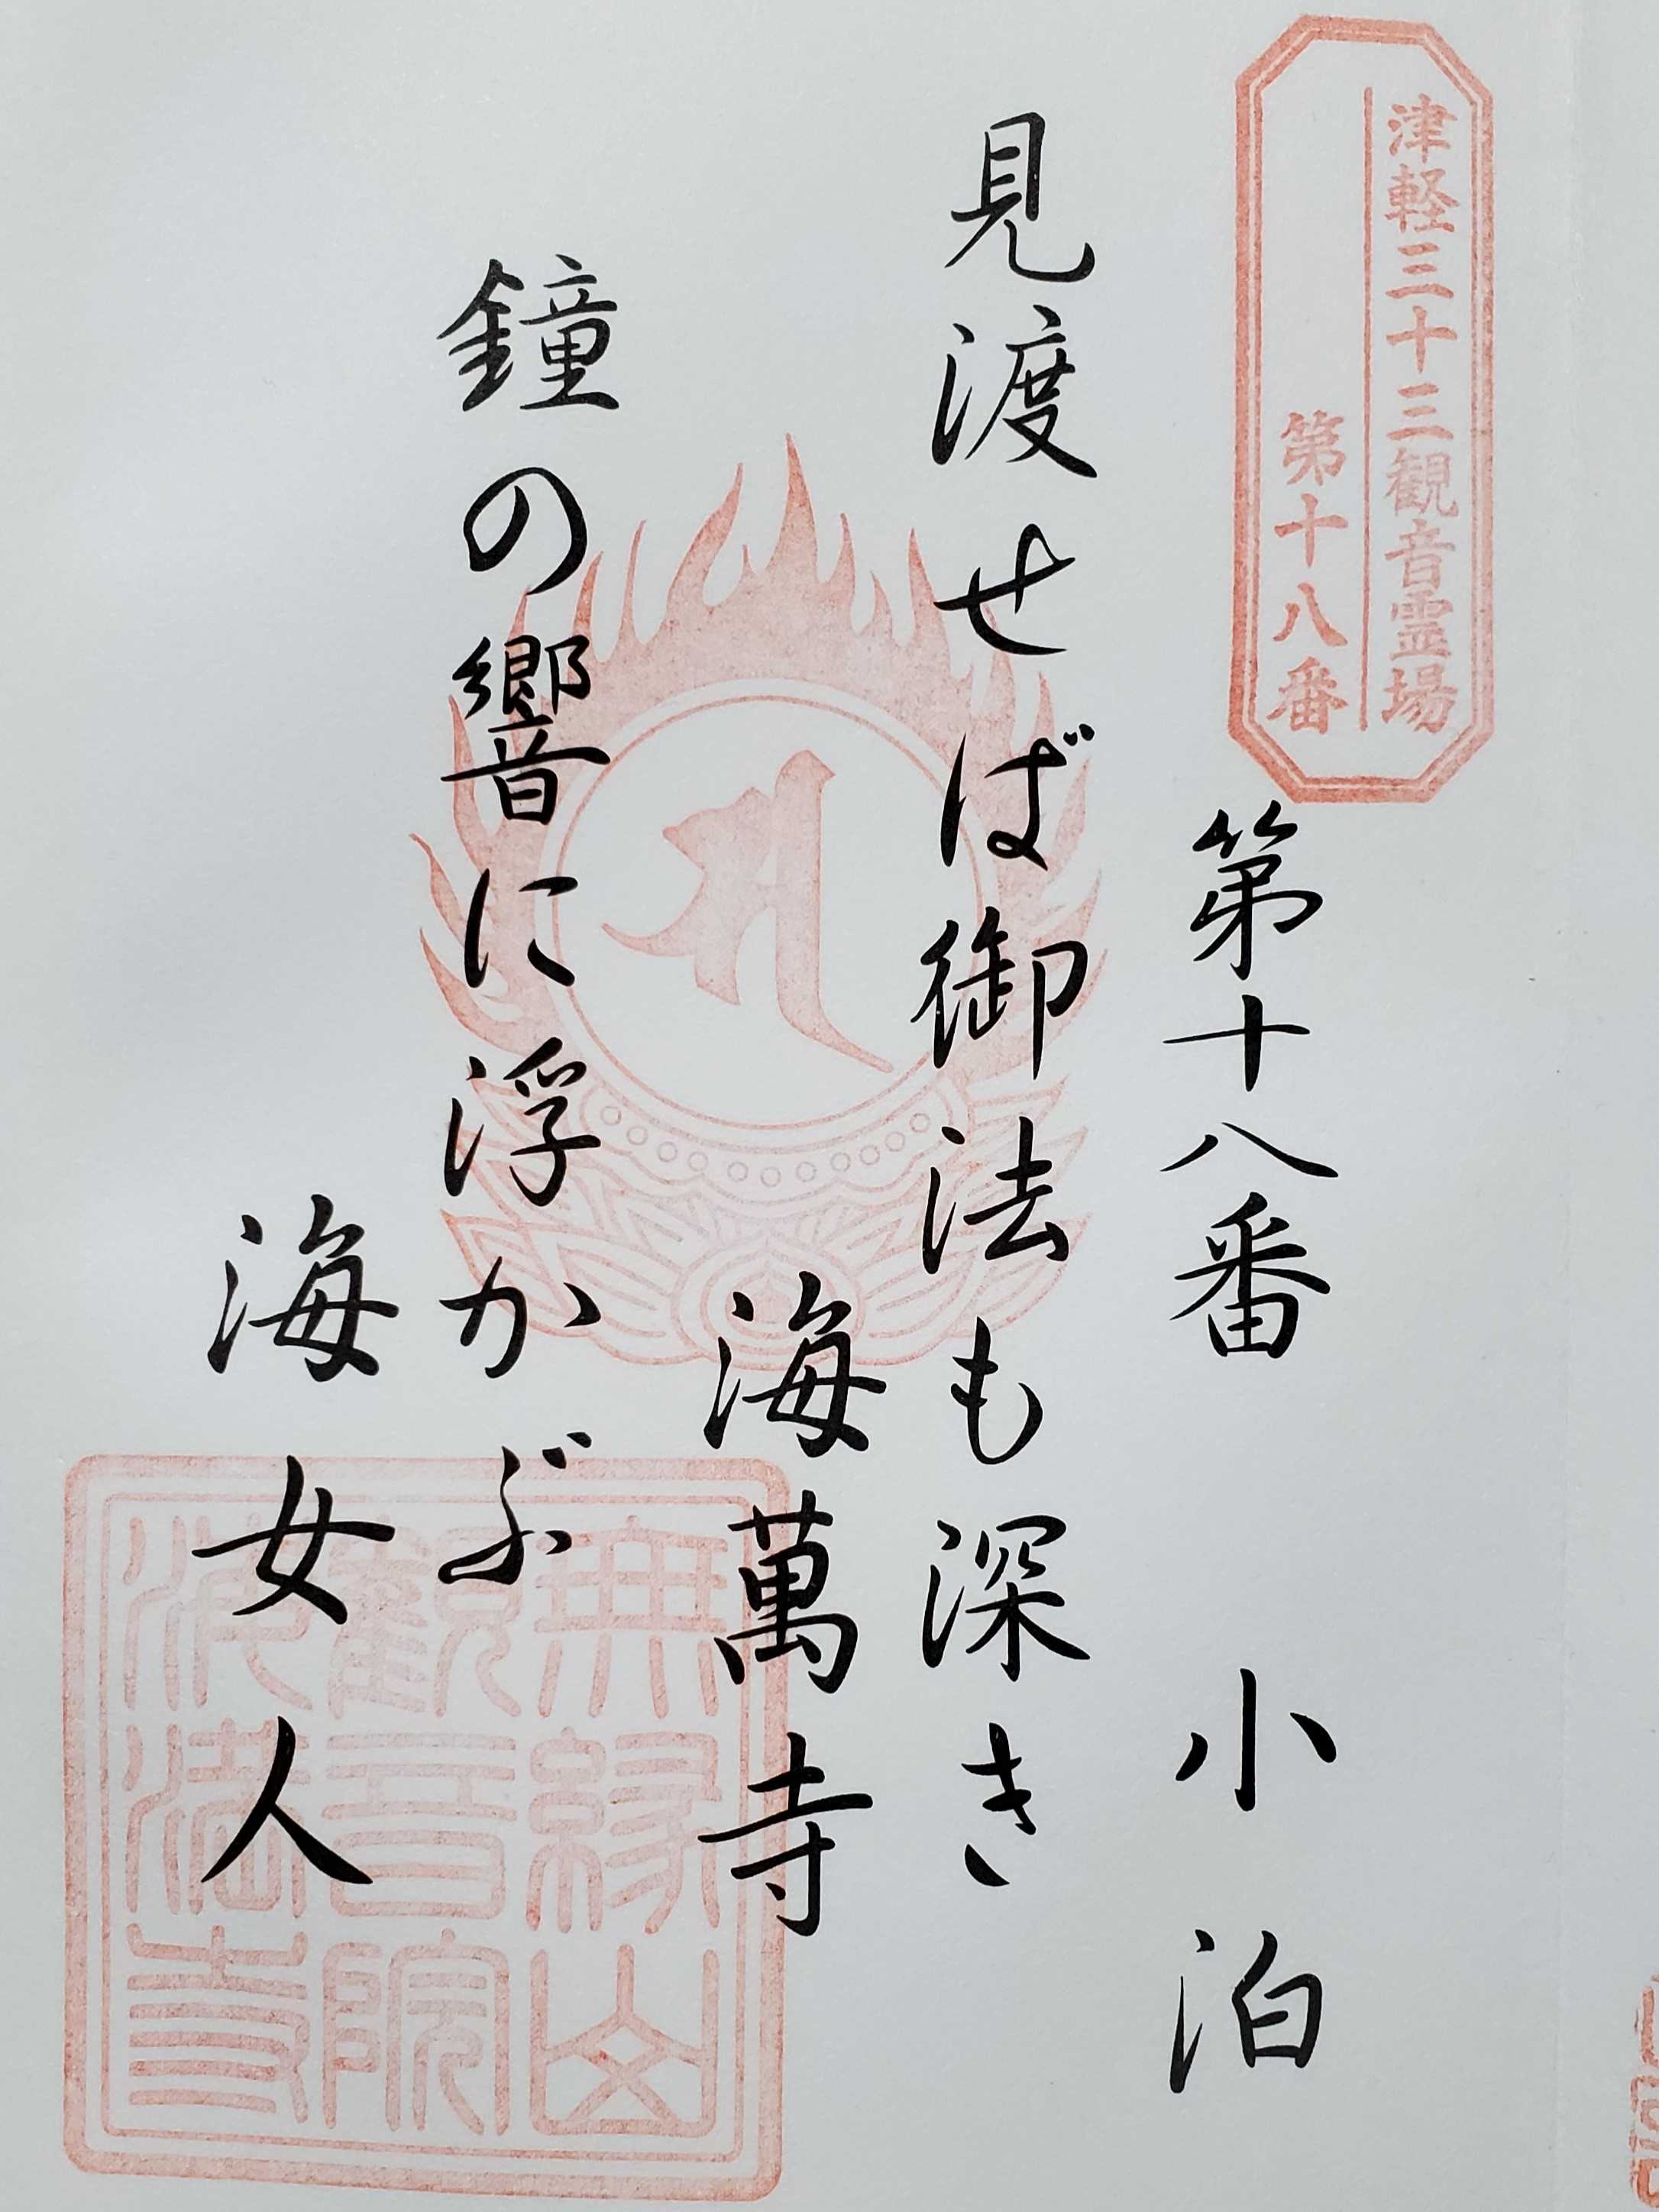 津軽三十三観音霊場
第十八番
第十八番 小泊
見渡せば御法も深き
海萬寺
鐘の響に浮かぶ
海女人
無縁山
観音院
海満寺